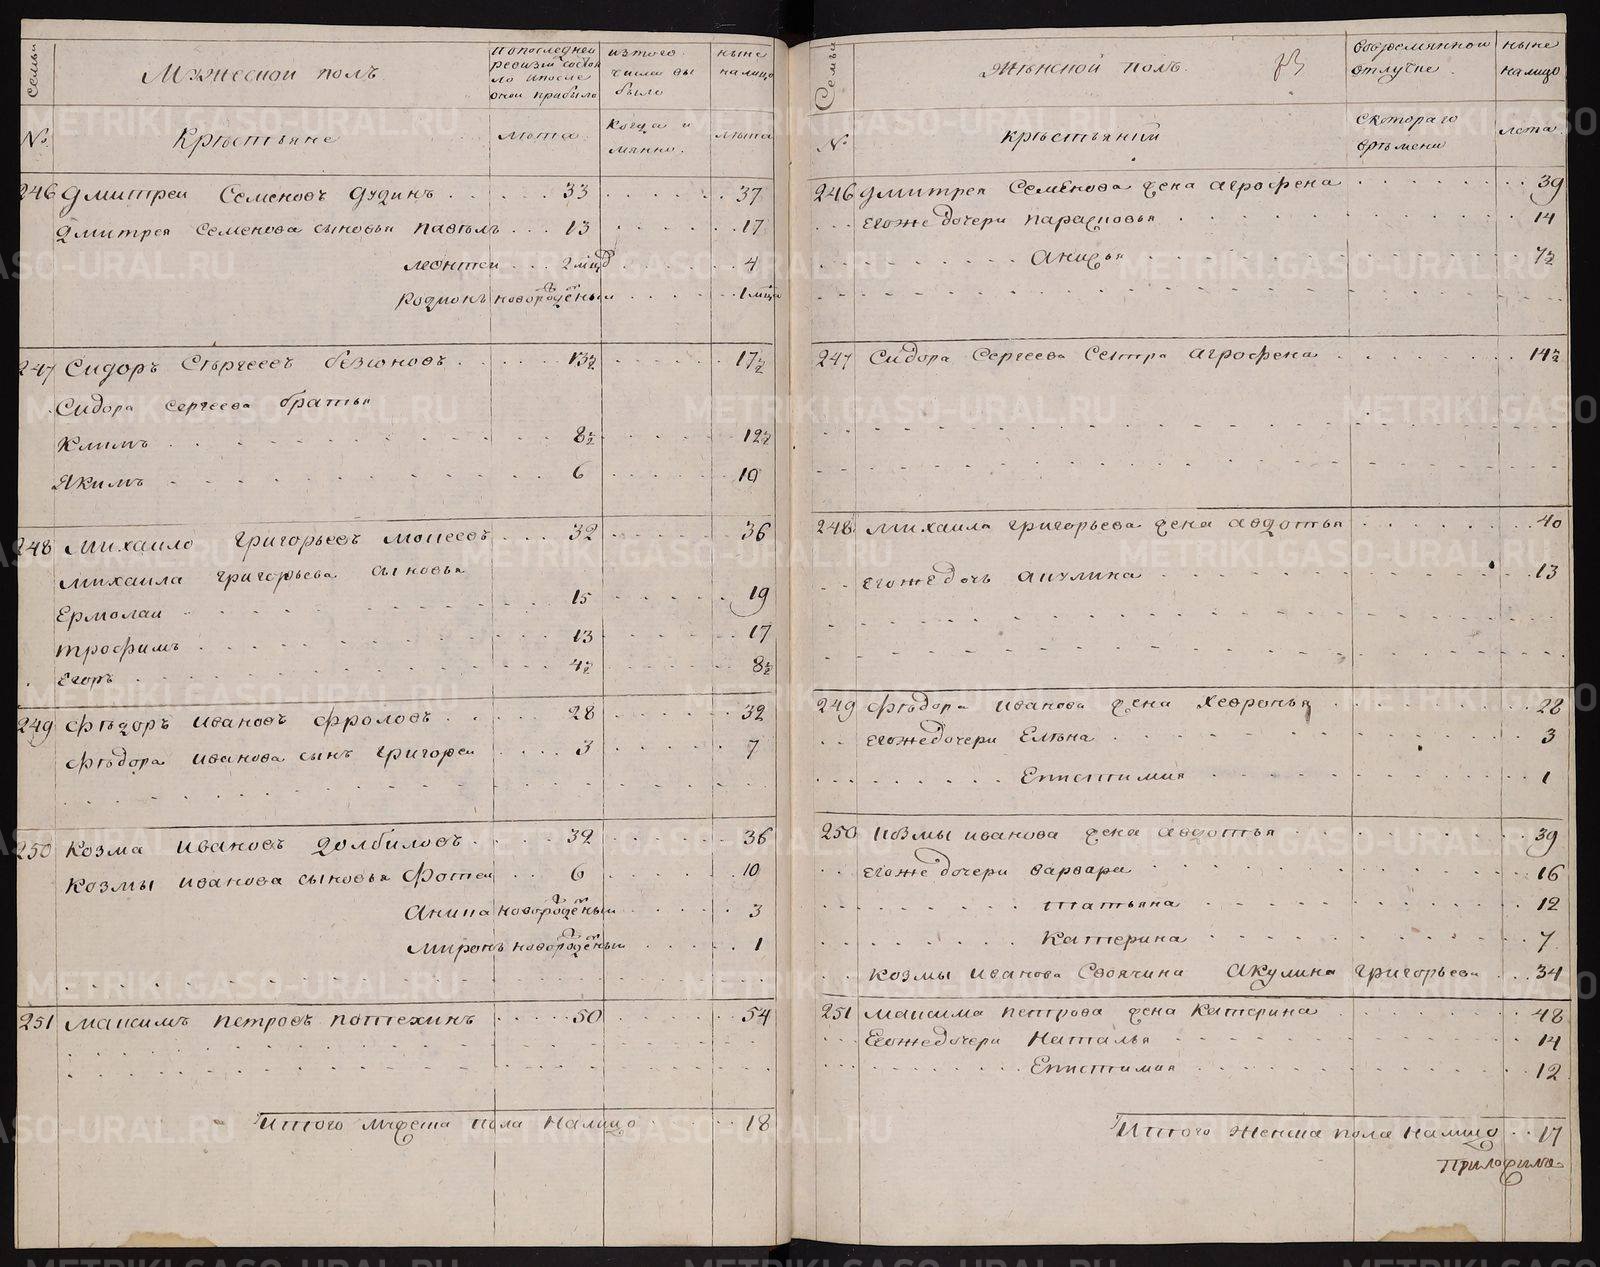 Семьи
Мужескои полъ
по последнеи
ревизии состоя
ло и после
онои прибыло
из того
числа вы
было
ныне
налицо
№
Крестьяне
лета
когда и
мянно.
лета
246 Дмитреи Семеновъ Дудинъ 33 37
Дмитрея Семенова сыновья Павелъ 13 17
Леонтеи 2 мцд 4
Родионъ новорожденыи 1 мца
247 Сидоръ Сергеевъ 13½ 17½
Сидора Сергеева братья
Климъ 8½ 12½
Якимъ 6 10
248 Михаило Григорьевъ Моисеевъ 32 36
Михаила Григорьева сыновья
Ермолаи 15 19
Трофимъ 13 17
Егоръ 4½ 8½
249 Федоръ Ивановъ Фроловъ 28 32
Федора Иванова сынъ Григореи 3 7
250 Козма Ивановъ Долбиловъ 32 36
Козмы Иванова сыновья Фотеи 6 10
Аника новорожденыи 3
Миронъ новорожденыи 1
251 Максимъ Петровъ Потехинъ 50 54
Итого мужеска пола налицо 18
Семьи
Женскои полъ.
во времяннои
отлучке.
ныне
налицо
№
крестьянки
с котораго
времени
лета
246 Дмитрея Семенова жена Агрофена 39
его же дочери Парасковья 14
Анисья 7½
247 Сидора Сергеева сестра Агрофена 14½
248 Михаила Григорьева жена Авдотья 40
его же дочь Акулина 13
249 Федора Иванова жена Хевронья 28
его же дочери Елена 3
Епистимия 1
250 Козмы Иванова жена Авдотья 39
его же дочери Варвара 16
Татьяна 12
Катерина 7
Козмы Иванова своячина Акулина Григорьева 34
251 Максима Петрова жена Катерина 48
Его же дочери Наталья 14
Епистимия 12
Итого женска пола налицо 17
METRIKI.GASO-URAL.RU